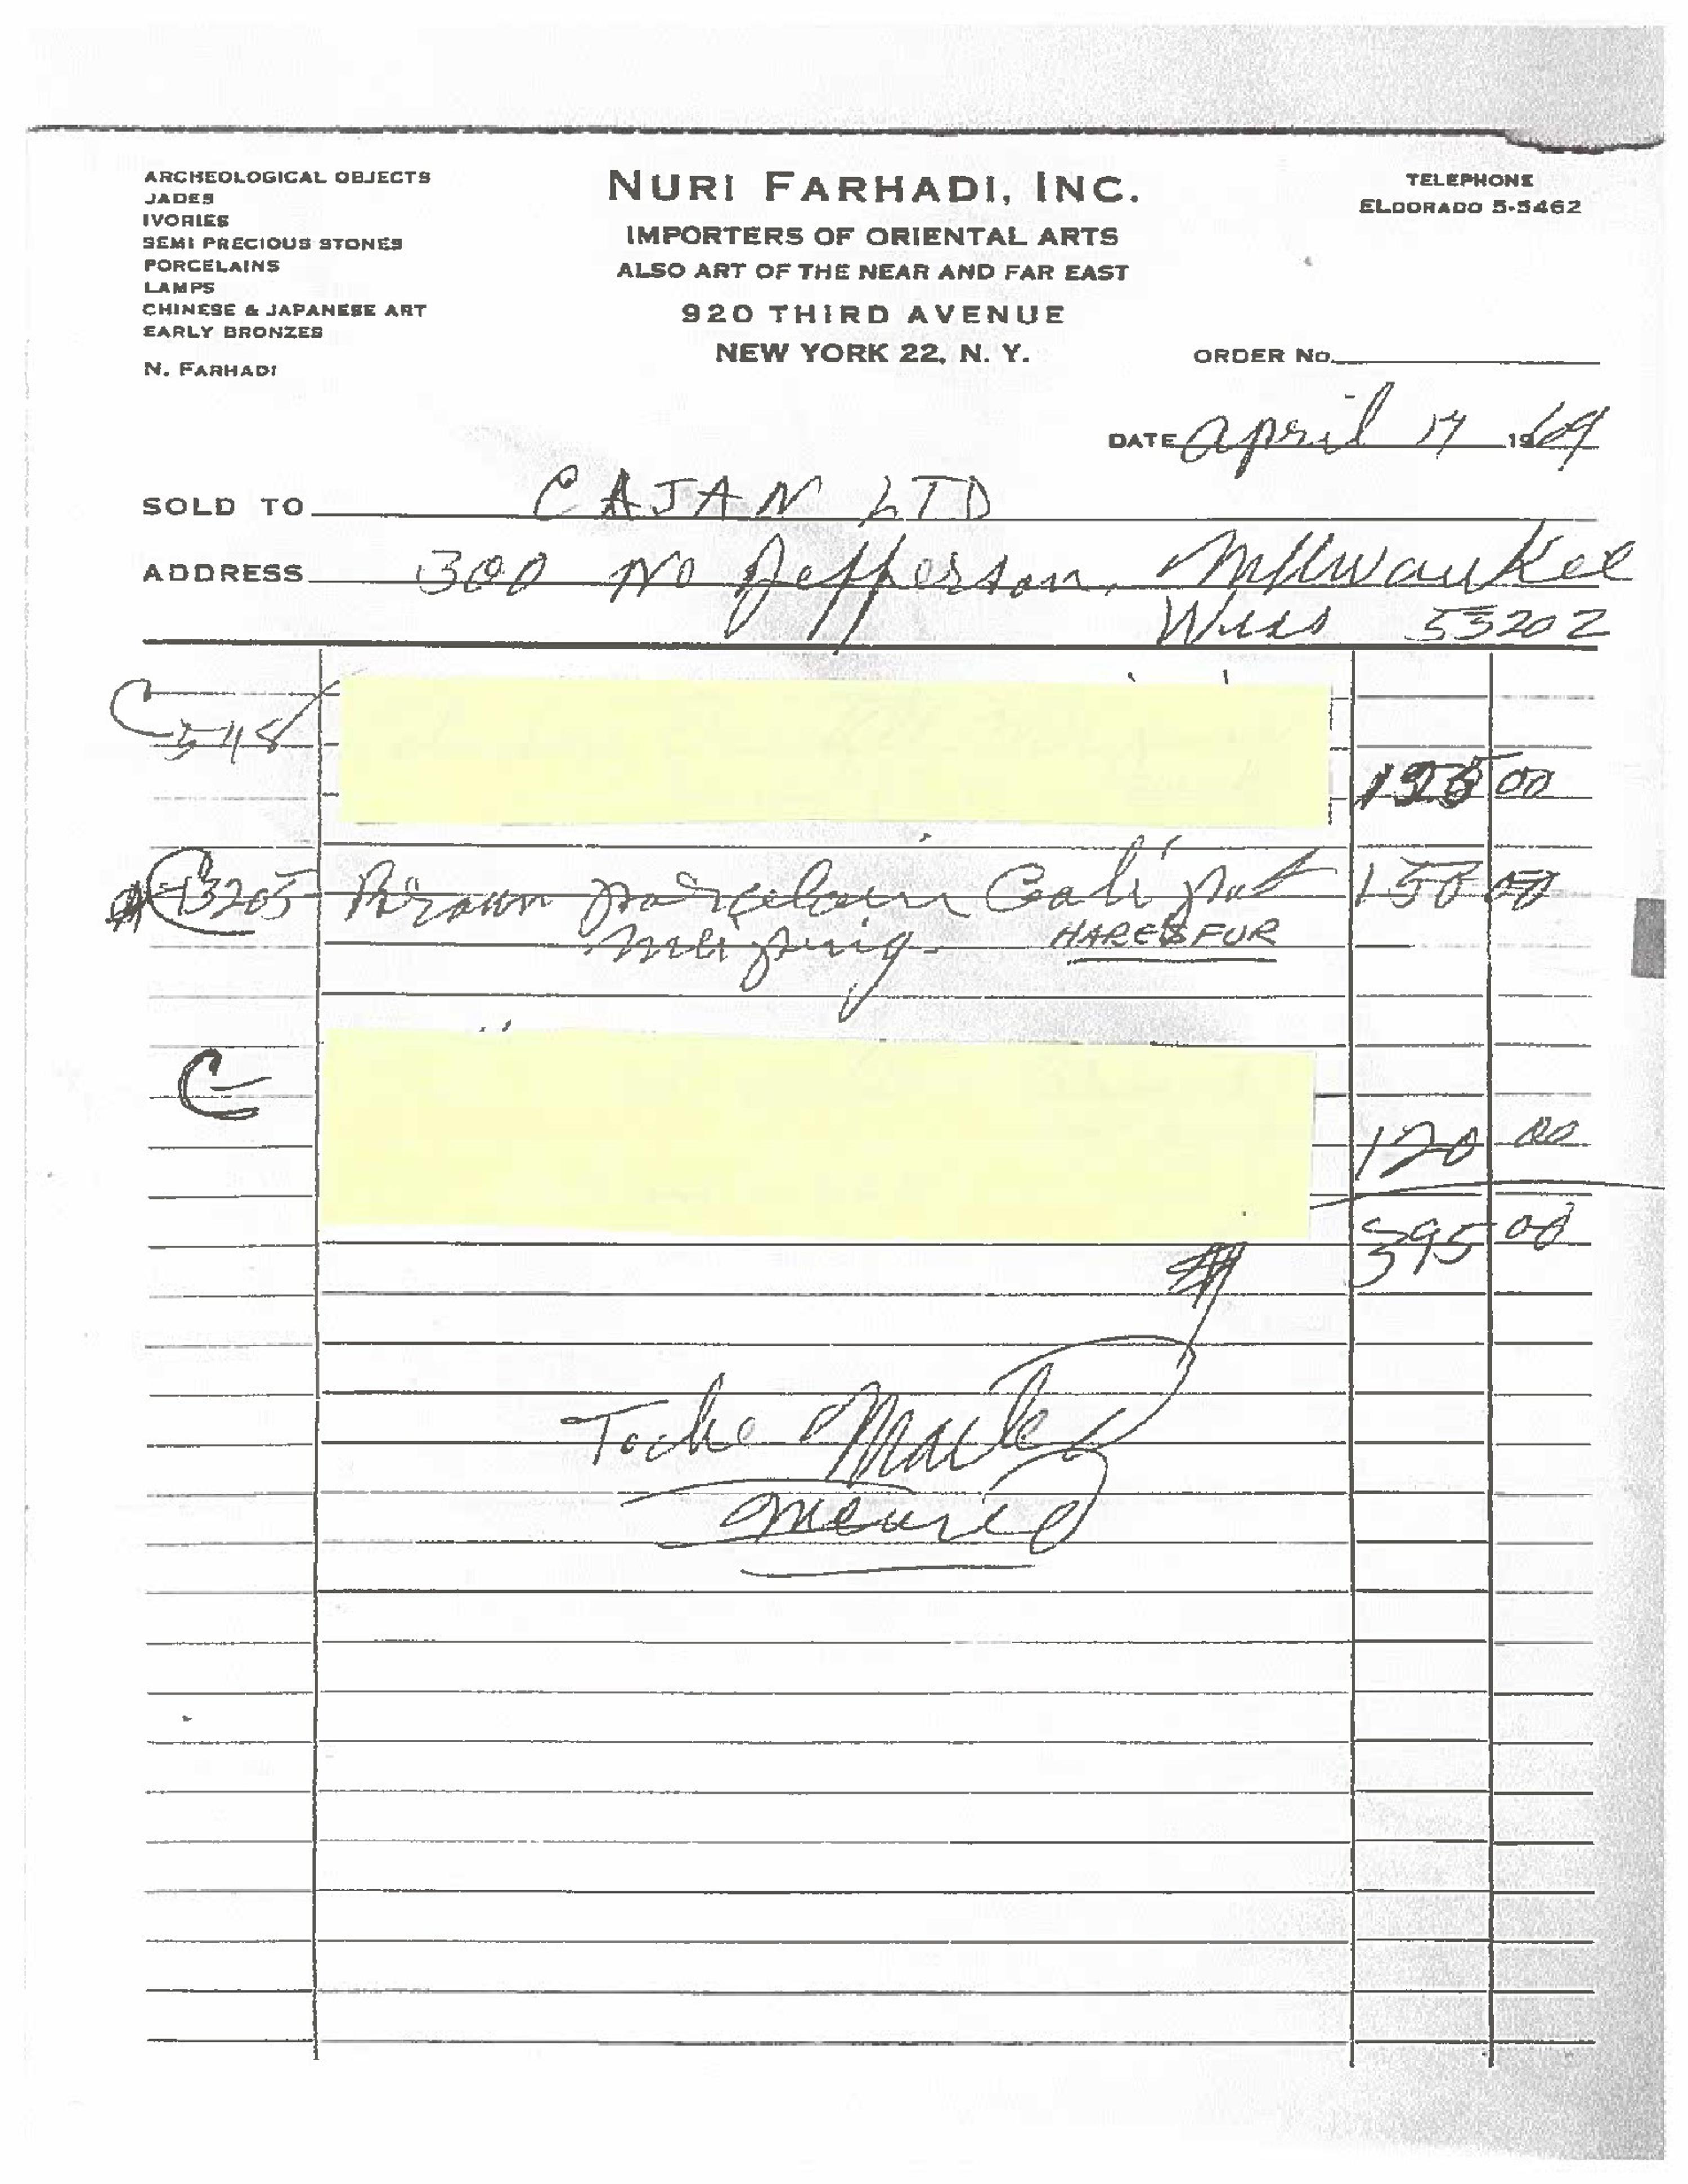 ARCHEOLOGICAL OBJECTS
JADES
IVORIES
SEMI PRECIOUS STONES
PORCELAINS
LAMPS
CHINESE & JAPANESE ART
EARLY BRONZES
N. FARHADI
NURI FARHADI, INC.
IMPORTERS OF ORIENTAL ARTS
ALSO ART OF THE NEAR AND FAR EAST
920 THIRD AVENUE
NEW YORK 22, N. Y.
TELEPHONE
ELDORADO 5-5462
ORDER No.
DATE april 17 1969
SOLD TO CAJAN LTD
ADDRESS 300 No Jefferson, Milwaukee
Wiss 53202
C 548
125 00
C 3205 Brown porcelain pot 150 00
HARES FUR
C
120 00
395 00